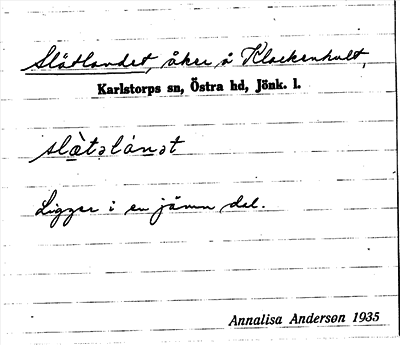 Slätlandet, åker å Klackenhult,
Karlstorps sn, Östra hd, Jönk. l.
slὰtəlánət
Ligger i en jämn del.
Annalisa Anderson 1935